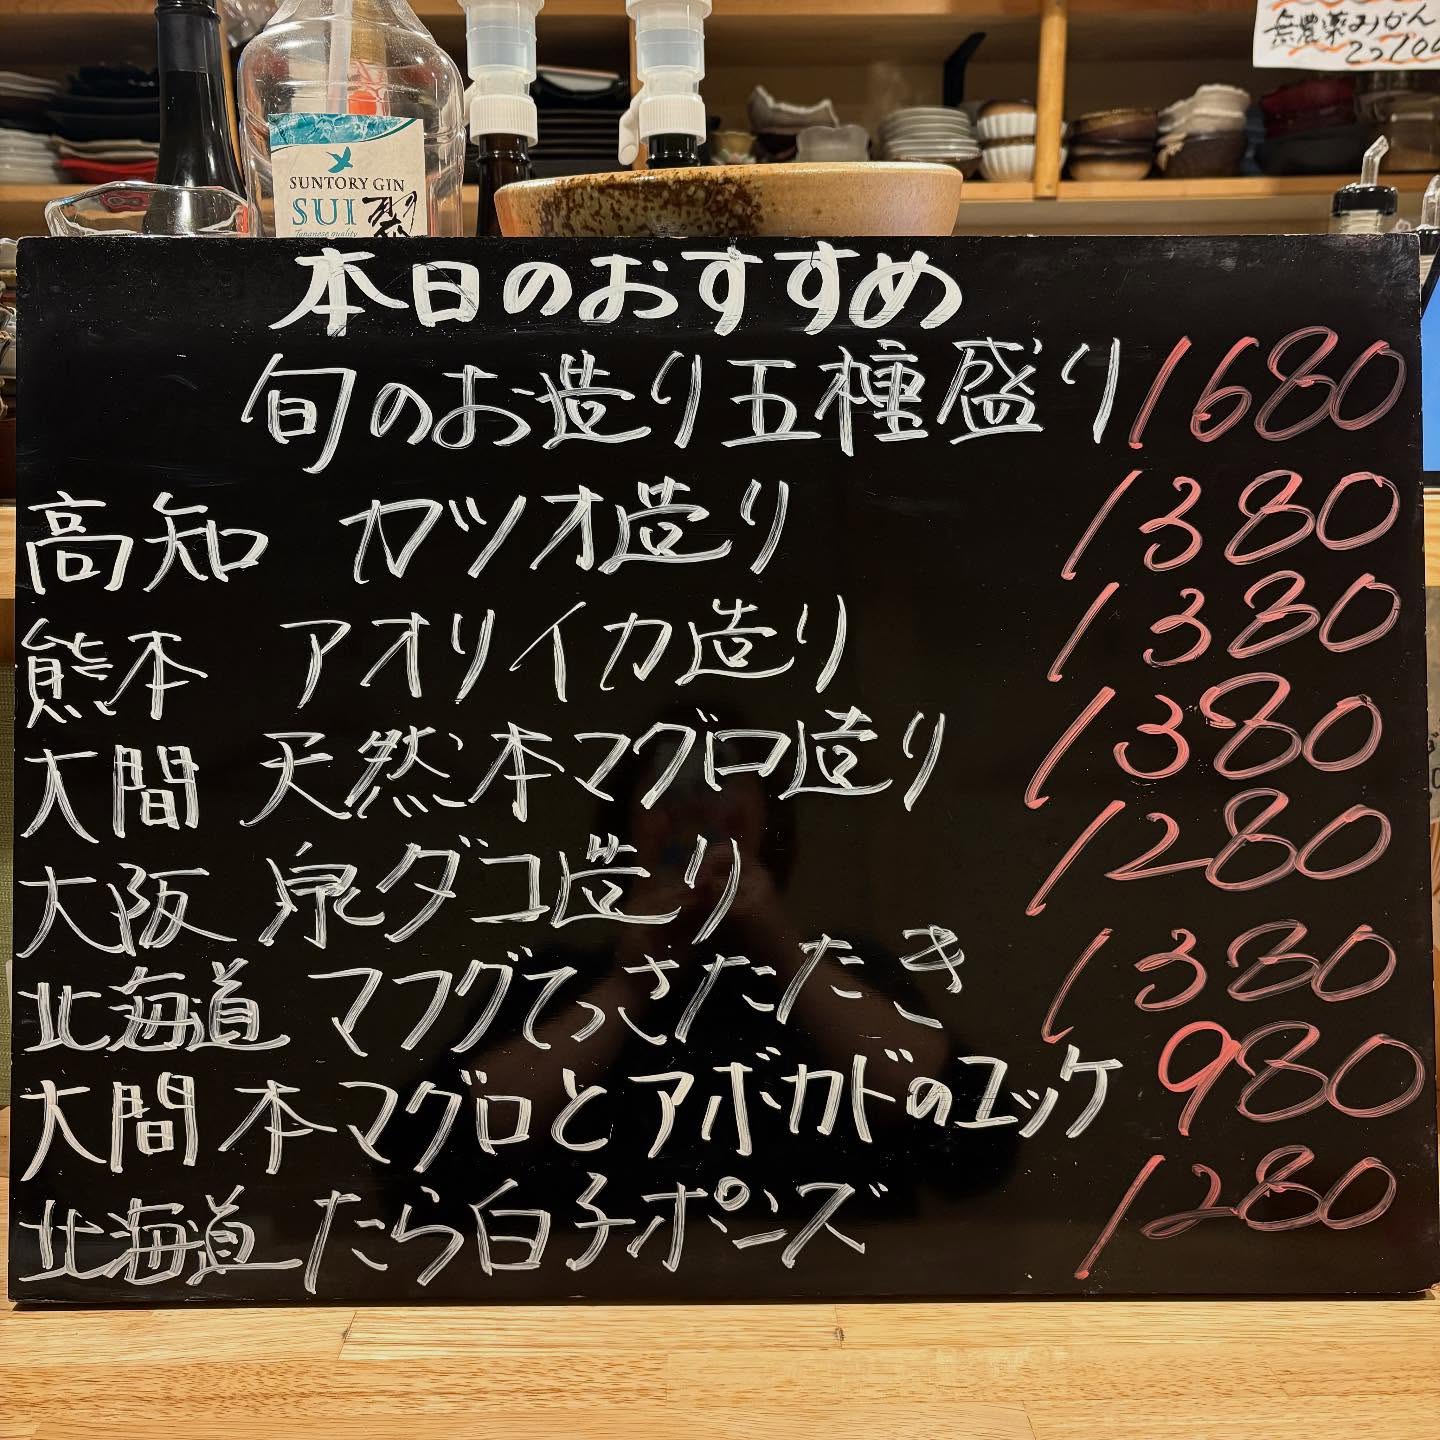 無農薬みかん
SUNTORY GIN
SUI
Japanese quality
翠
本日のおすすめ
旬のお造り五種盛り 1680
高知 カツオ造り 1380
熊本 アオリイカ造り 1380
大間 天然本マグロ造り 1380
大阪 泉ダコ造り 1280
北海道 マフグてっさたたき 1380
大間 本マグロとアボカドのユッケ 980
北海道 たら白子ポンズ 1280